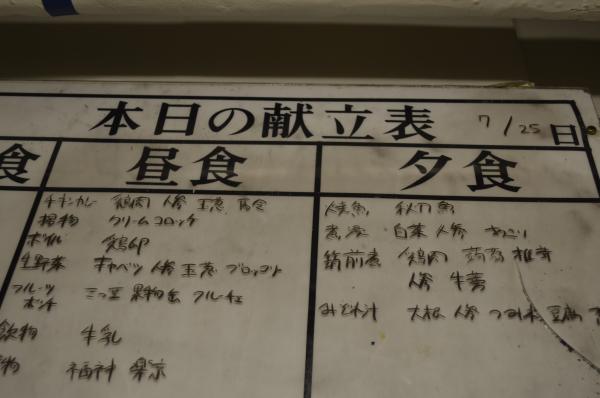 本日の献立表 7/25日
食 昼食 夕食
チキンカレー 鶏肉 人参 玉葱
揚物 クリームコロッケ
ボイル 鶏卵
生野菜 キャベツ 人参 玉葱 ブロッコリ
フルーツポンチ 三つ豆 果物缶 フルーチェ
飲物 牛乳
物 福神
焼魚 秋刀魚
煮浸 白菜 人参 あぶり
筑前煮 鶏肉 蒟蒻 椎茸
人参 牛蒡
みぞれ汁 大根 人参 つみれ 豆腐